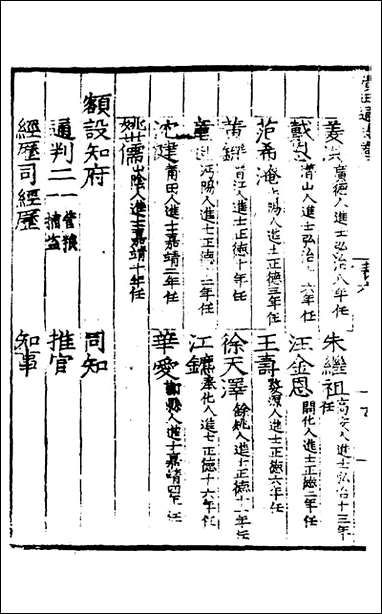 姜 廣德人進士弘治八年任 朱繼祖 高安人進士弘治十三年任
戴 人進士弘治 六年任 汪金恩 開化人進士正德二年任
范希淹 人進士正德三年任 王壽 人進士正德六年任
黃 晉江人進士正德十年任 徐天澤 餘姚人進士正德十 年任
沔陽人進士正德 二年任 江 奉化人進士正德十六年任
沈建 莆田人進士嘉靖二年任 華愛 縣人進士嘉靖四年任
姚世儒 山陰人進士嘉靖十年任
額設知府 同知
通判二 管糧 捕盜 推官
經歷司經歷 知事